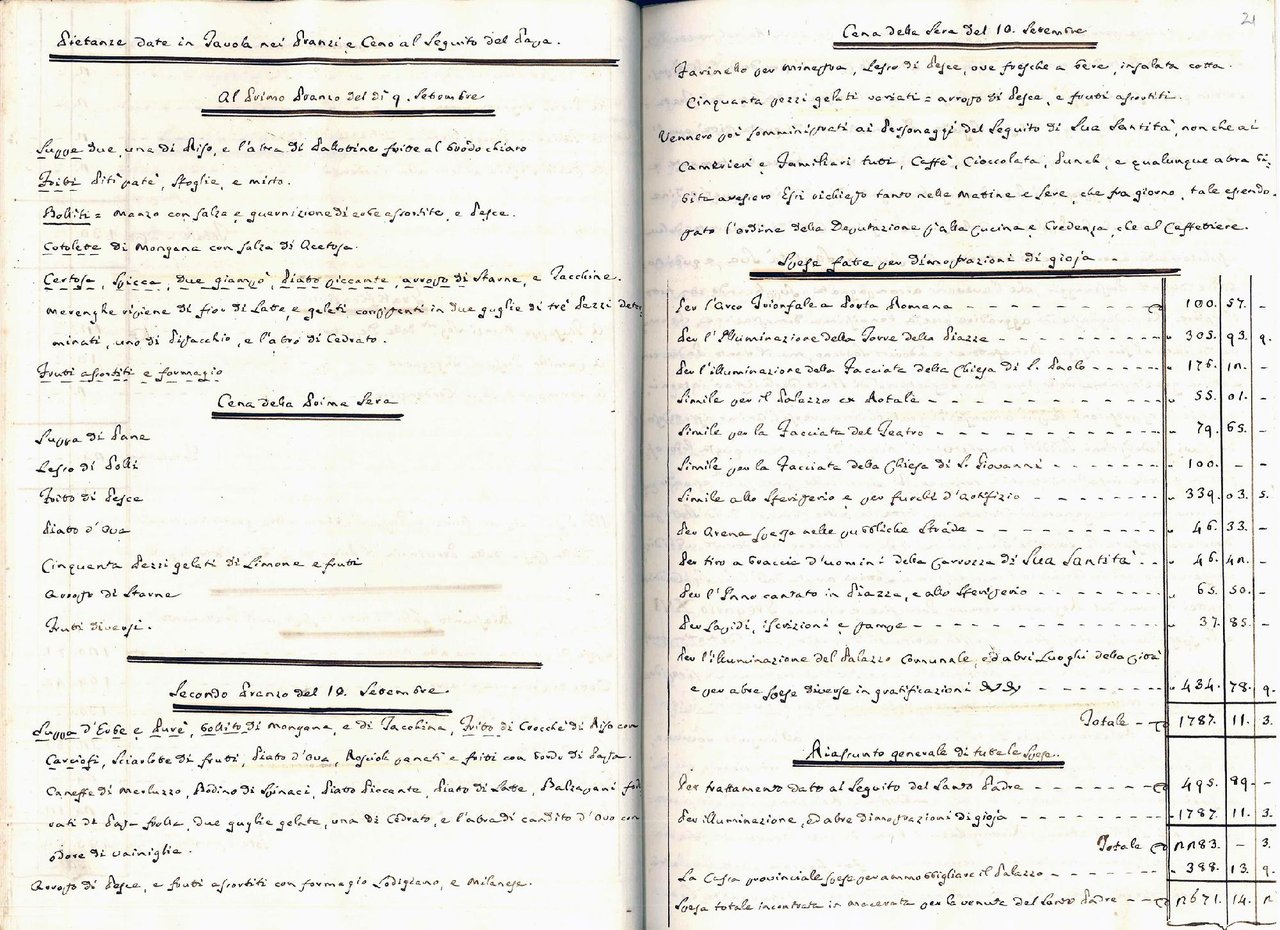 Pietanze date in Tavola nei Pranzi e Cene al Seguito del Papa.
Al Primo Pranzo del dì 9. Settembre
Zuppe due, una di Riso, e l'altra di Pallottine fritte al brodo chiaro
Fritti Pitì patè, Sfoglie, e misto.
Bolliti = Manzo con salza e guarnizione di erbe assortite, e Pesce.
Cotolette di Mongana con salza di Acetosa.
Certosa, Spicca, due giampò, Piatto piccante, arrosto di Starne, e Tacchine.
Merenghe ripiene di fior di Latte, e gelati consistenti in due guglie di tre Pezzi deter-
minati, uno di Pistacchio, e l'altro di Cedrato.
Frutti assortiti e formagio
Cena della Prima Sera
Zuppa di Pane
Lesso di Polli
Fritto di Pesce
Piatto d'Ova
Cinquanta Pezzi gelati di Limone e frutti
Arrosto di Starne
Frutti diversi.
Secondo Pranzo del 10. Settembre.
Zuppa d'Erbe e Purè, bollito di Mongana, e di Tacchina, Fritto di Crocchè di Riso con
Carciofi, Sciarlotte di frutti, Piatto d'Ova, Roscioli panati e fritti con bordo di Pasta.
Caneffe di Merluzzo, Bodino di Spinaci, Piatto Piccante, Piatto di Latte, Balzapani fode
rati di Pasta frolla, due guglie gelate, una di Cedrato, e l'altra di candito d'Ovo con
odore di vainiglie.
Arrosto di Pesce, e frutti assortiti con formagio Lodigiano, e Milanese.
21
Cena della Sera del 10. Settembre
Farinello per minestra, Lesso di Pesce, ove fresche a bere, insalata cotta.
Cinquanta pezzi gelati variati = arrosto di Pesce, e frutti assortiti.
Vennero poi somministrati ai Personaggi del Seguito di Sua Santità, non che ai
Camerieri e Famigliari tutti, Caffè, Cioccolata, Punch, e qualunque altra bi-
bita avessero Essi richiesto tanto nelle Matine e Sere, che fra giorno, tale essendo
stato l'ordine della Deputazione sì alla cucina e Credenza, che al Caffettiere.
Spese fatte per dimostrazioni di gioja
Per l'Arco Trionfale a Porta Romana 100. 57. -
Per l'Illuminazione della Torre della Piazza " 305. 93. 9.
Per l'illuminazione della Facciata della Chiesa di S. Paolo " 176. 12. -
Simile per il Palazzo ex Rotale " 55. 01. -
Simile per la Facciata del Teatro " 79. 65. -
Simile per la Facciata della Chiesa di S. Giovanni " 100. - -
Simile allo Sferisterio e per fuochi d'Artifizio " 339. 03. 5.
Per Arena sparsa nelle pubbliche Strade " 46. 33. -
Per tiro a braccia d'uomini della Carrozza di Sua Santità " 46. 42. -
Per l'Inno cantato in Piazza, e allo Sferisterio " 65. 50. -
Per Lapidi, iscrizioni e stampe " 37. 85. -
Per l'illuminazione del Palazzo Comunale, ed altri Luoghi della Città
e per altre spese diverse in gratificazioni " 434. 78. 9.
Totale 1787. 11. 3.
Riassunto generale di tutte le Spese.
Per trattamento dato al Seguito del Santo Padre 495. 89. -
Per illuminazione, ed altre dimostrazioni di gioja 1787. 11. 3.
Totale 2283. - 3.
La Cassa provinciale spese per ammobbigliare il Palazzo " 388. 13. 9.
Spesa totale incontrata in Macerata per la venuta del Santo Padre 2671. 14. 2